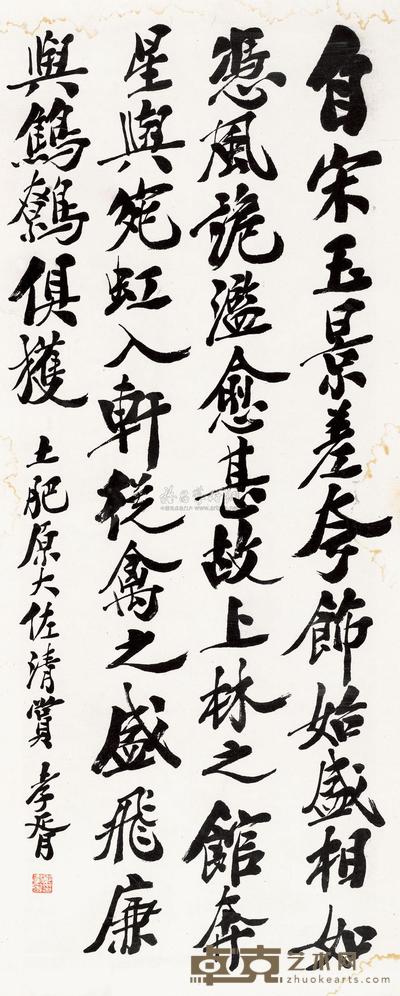 自宋玉景差夸飾始盛相如
憑風詭濫愈甚故上林之館奔
星與宛虹入軒從禽之盛飛廉
與鷦鷯俱獲
土肥原大佐清賞 孝胥
卓克艺术网
www.zhuokearts.com